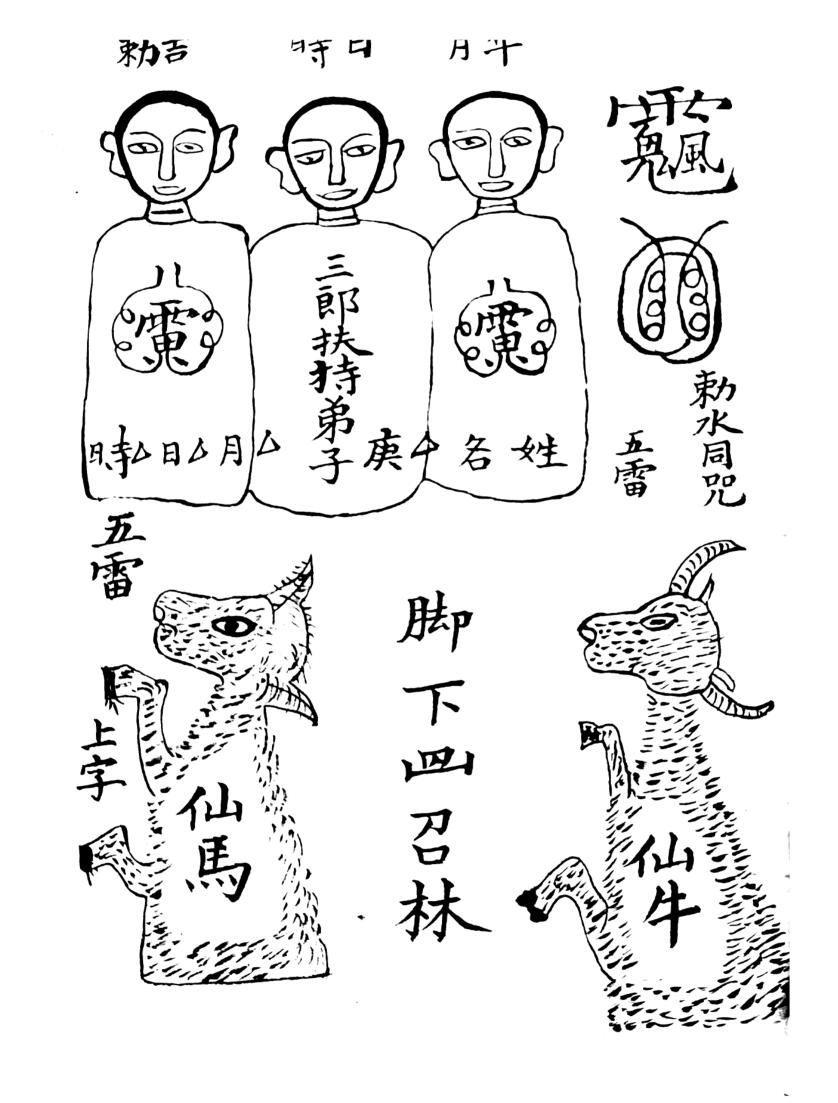 月
日時
吉勅
勅水同咒
五雷
三郎扶持弟子
姓名△庚△月△日△時
五雷
仙牛
脚下四召林
仙馬
上字